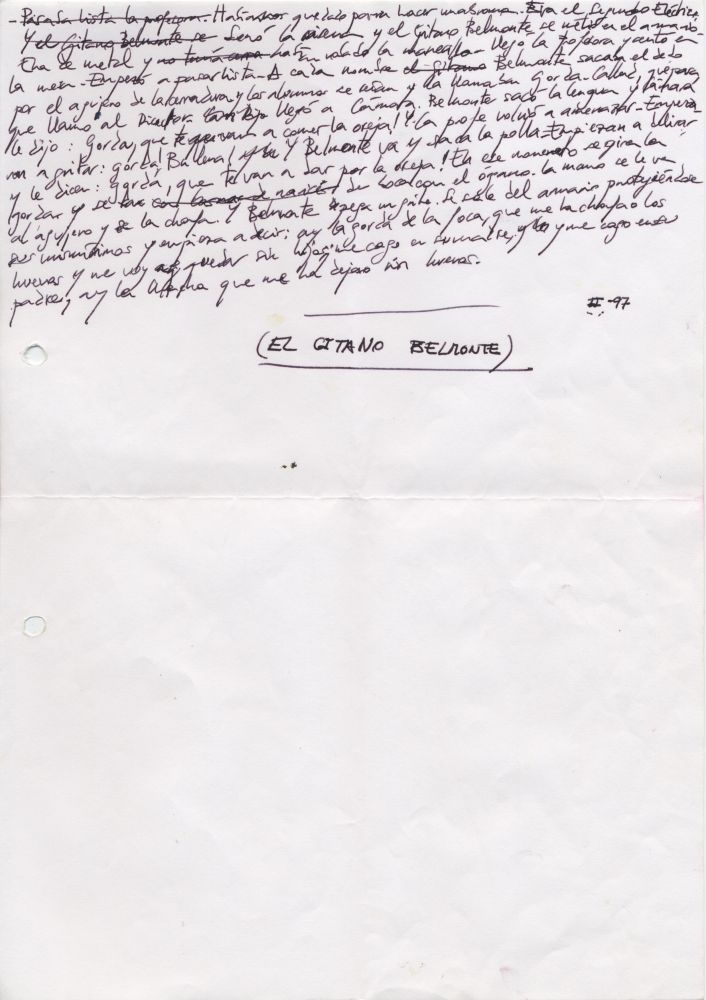 - Pasaba lista la profesora. Habíamos quedado para hacer una broma. Era el Segundo Eléctrica
y el Gitano Belmonte se Sonó la sirena y el Gitano Belmonte se metió en el armario.
Era de metal y no tenía había volado la manecilla. Llegó la profesora y entró en
la mesa. Empezó a pasar lista. A cada nombre el gitano Belmonte sacaba el dedo
por el agujero de la cerradura y los alumnos se reían y la llamaban Gorda. Callad,
que llamo al Director. Llegó a Cámara. Belmonte sacó la lengua y la
le dijo: Gorda, que te van a comer la oreja! Y la profe volvió a amenazar. Empeza-
ron a gritar: gorda! Ballena! y Belmonte va y saca la polla. Empiezan a
y le dicen: gorda, que te van a dar por la oreja! En ese momento se gira la
gorda y se de boca con el órgano. La mano se le va
al agujero y se la chafa. Y Belmonte pega un grito. Se sale del armario protegiéndose
sus y empieza a decir: ay la gorda de la foca, que me ha chafao los
huevos y me voy a quedar sin hijos, me cago en su madre, y me cago en su
padre, ay la que me ha dejao sin huevos.
II-97
(EL GITANO BELMONTE)